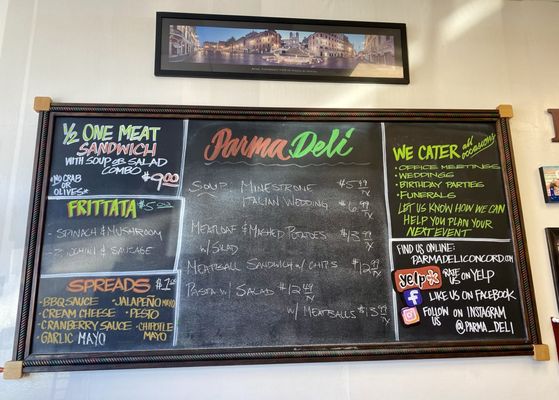 ½ ONE MEAT
SANDWICH
WITH SOUP OR SALAD
COMBO
*NO CRAB
OR
OLIVES*
$9.00
FRITTATA $5.25
- SPINACH & MUSHROOM
- ZUCCHINI & SAUSAGE
SPREADS $1.00
- BBQ SAUCE - JALAPEÑO MAYO
- CREAM CHEESE - PESTO
- CRANBERRY SAUCE - CHIPOTLE
MAYO
- GARLIC MAYO
PARMA DELI
SOUP: MINESTRONE $5.99
TX
ITALIAN WEDDING $6.99
TX
MEATLOAF & MASHED POTATOES $13.99
TX
W/ SALAD
MEATBALL SANDWICH W/ CHIPS $12.99
TX
PASTA W/ SALAD $12.49
TX
W/ MEATBALLS $13.99
TX
WE CATER all occasions
- OFFICE MEETINGS
- WEDDINGS
- BIRTHDAY PARTIES
- FUNERALS
LET US KNOW HOW WE CAN
HELP YOU PLAN YOUR
NEXT EVENT
FIND US ONLINE:
PARMADELICONCORD.COM
yelp RATE US ON YELP
f LIKE US ON FACEBOOK
FOLLOW US ON INSTAGRAM
@PARMA_DELI